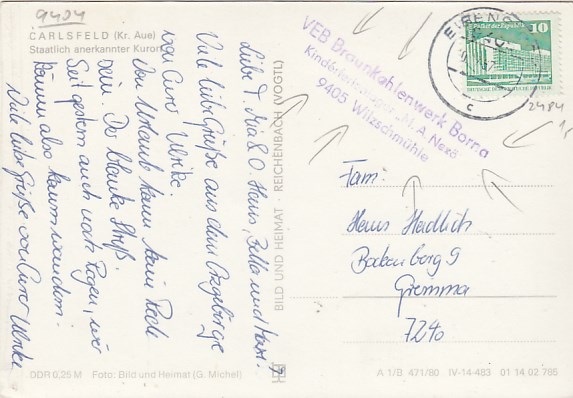 9404
CARLSFELD (Kr. Aue)
Staatlich anerkannter Kurort
Liebe T. Mia & O. Hans,
Viele liebe Grüße aus dem Erzgebirge
von Eurer Ulrike.
Der Urlaub kann kein
sein. Der blanke
Seit gestern auch noch Regen, wir
können also kaum wandern.
Viele liebe Grüße von Eurer Ulrike
DDR 0,25 M Foto: Bild und Heimat (G. Michel)
BILD UND HEIMAT · REICHENBACH (VOGTL)
VEB Braunkohlenwerk Borna
M. A. Nexö
9405 Wilzschmühle
EIBENSTOCK
c
10
DEUTSCHE DEMOKRATISCHE REPUBLIK
2484
Fam.
Hans Hadlich
Bodenberg 9
Grimma
7240
A 1/B 471/80 IV-14-483 01 14 02 785